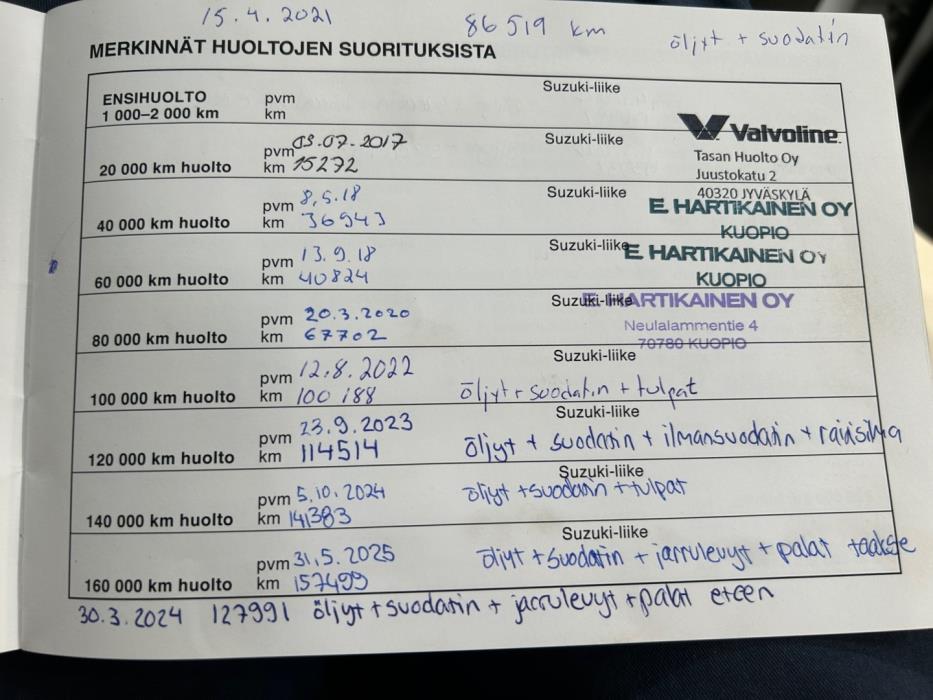 15.4.2021 86519 km öljyt + suodatin
MERKINNÄT HUOLTOJEN SUORITUKSISTA
ENSIHUOLTO pvm Suzuki-liike
1 000–2 000 km km
Valvoline
pvm 03.07.2017 Suzuki-liike
20 000 km huolto km 15272
Tasan Huolto Oy
Juustokatu 2
40320 JYVÄSKYLÄ
pvm 8.5.18 Suzuki-liike
40 000 km huolto km 36943
E. HARTIKAINEN OY
KUOPIO
pvm 13.9.18 Suzuki-liike
60 000 km huolto km 40824
E. HARTIKAINEN OY
KUOPIO
pvm 20.3.2020 Suzuki-liike
80 000 km huolto km 67702
E. HARTIKAINEN OY
Neulalammentie 4
70780 KUOPIO
pvm 12.8.2022 Suzuki-liike
100 000 km huolto km 100 188 öljyt + suodatin + tulpat
pvm 23.9.2023 Suzuki-liike
120 000 km huolto km 114514 öljyt + suodatin + ilmansuodatin +
pvm 5.10.2024 Suzuki-liike
140 000 km huolto km 141383 öljyt + suodatin + tulpat
pvm 31.5.2025 Suzuki-liike
160 000 km huolto km 157499 öljyt + suodatin + jarrulevyt + palat taakse
30.3.2024 127991 öljyt + suodatin + jarrulevyt + palat eteen